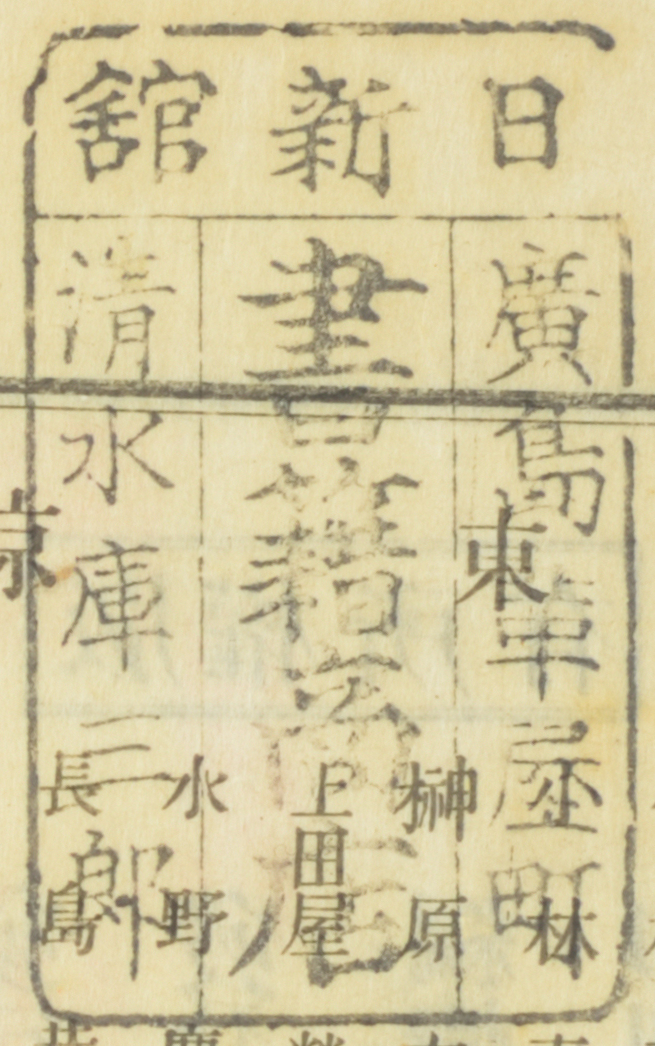 日新舘
廣島革屋町
書籍
清水庫三郎
東京
林
榊原
上田屋
水野
長島